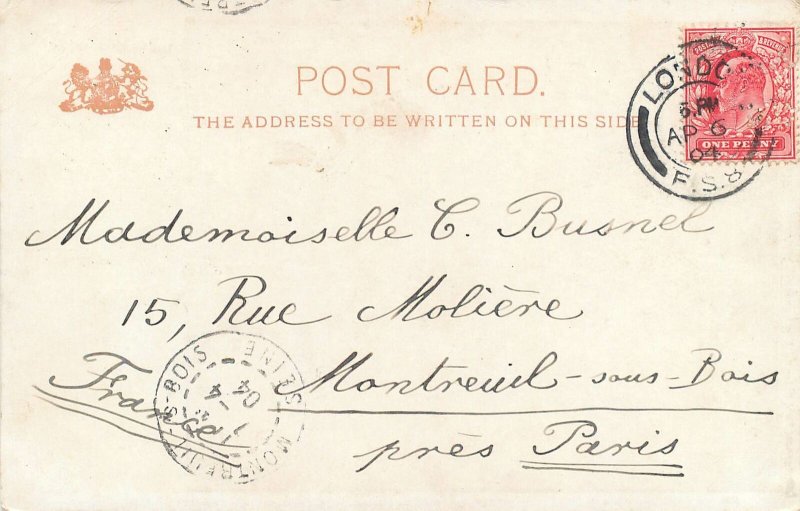 POST CARD.
THE ADDRESS TO BE WRITTEN ON THIS SIDE
LONDON
5.PM
AP 6
04
F.S.8
ONE PENNY
Mademoiselle C. Busnel
15, Rue Molière
Montreuil-sous-Bois
France
près Paris
MONTREUIL-S-BOIS SEINE
7 -4
04